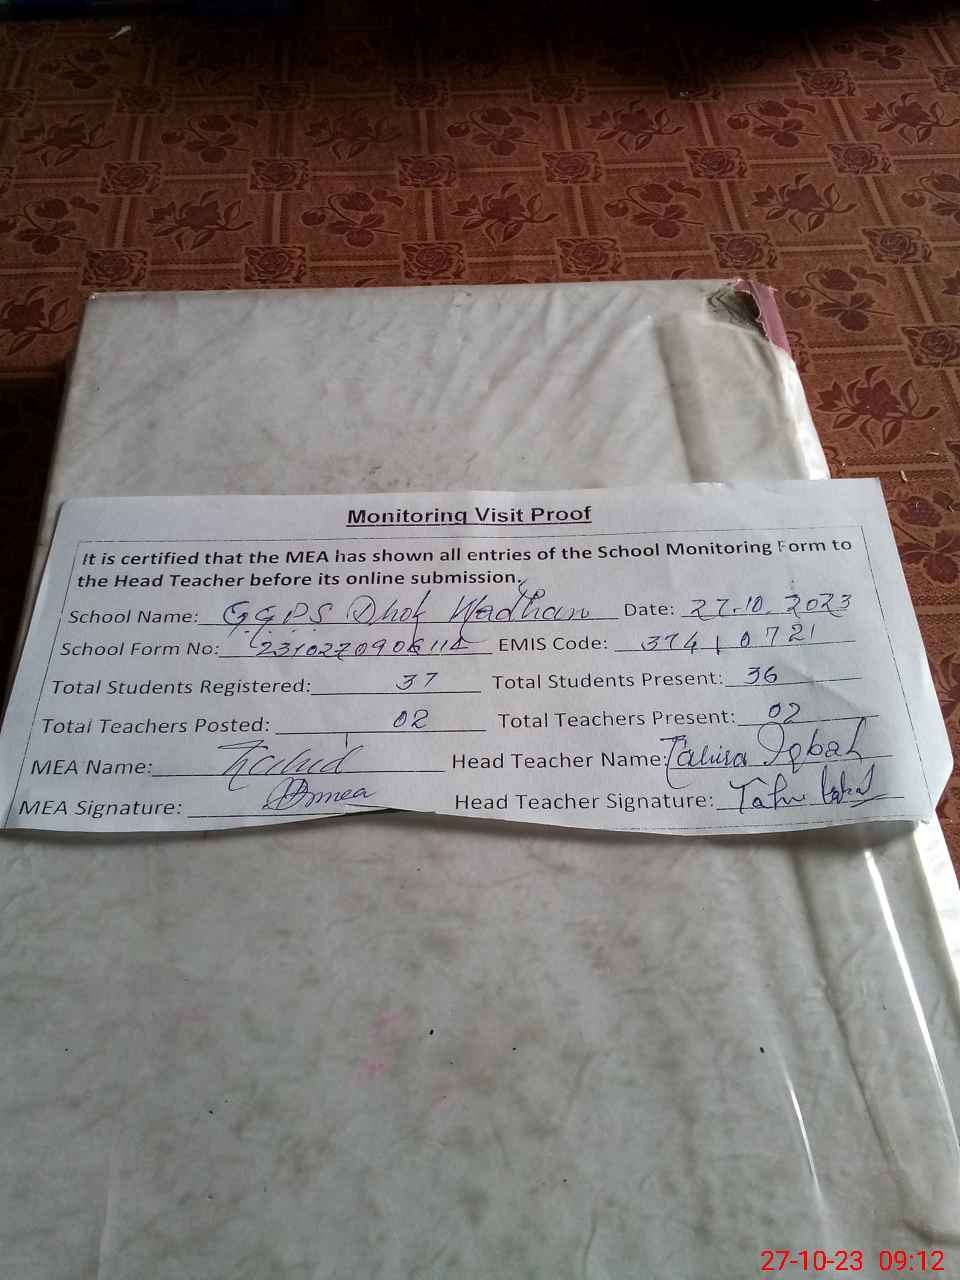 Monitoring Visit Proof
It is certified that the MEA has shown all entries of the School Monitoring Form to
the Head Teacher before its online submission.
School Name: G.G.P.S Dhok Wadhan Date: 27.10.2023
School Form No: EMIS Code: 37410721
Total Students Registered: 37 Total Students Present: 36
Total Teachers Posted: 02 Total Teachers Present: 02
MEA Name: Zahid Head Teacher Name: Tahira Iqbal
MEA Signature: Head Teacher Signature:
27-10-23 09:12